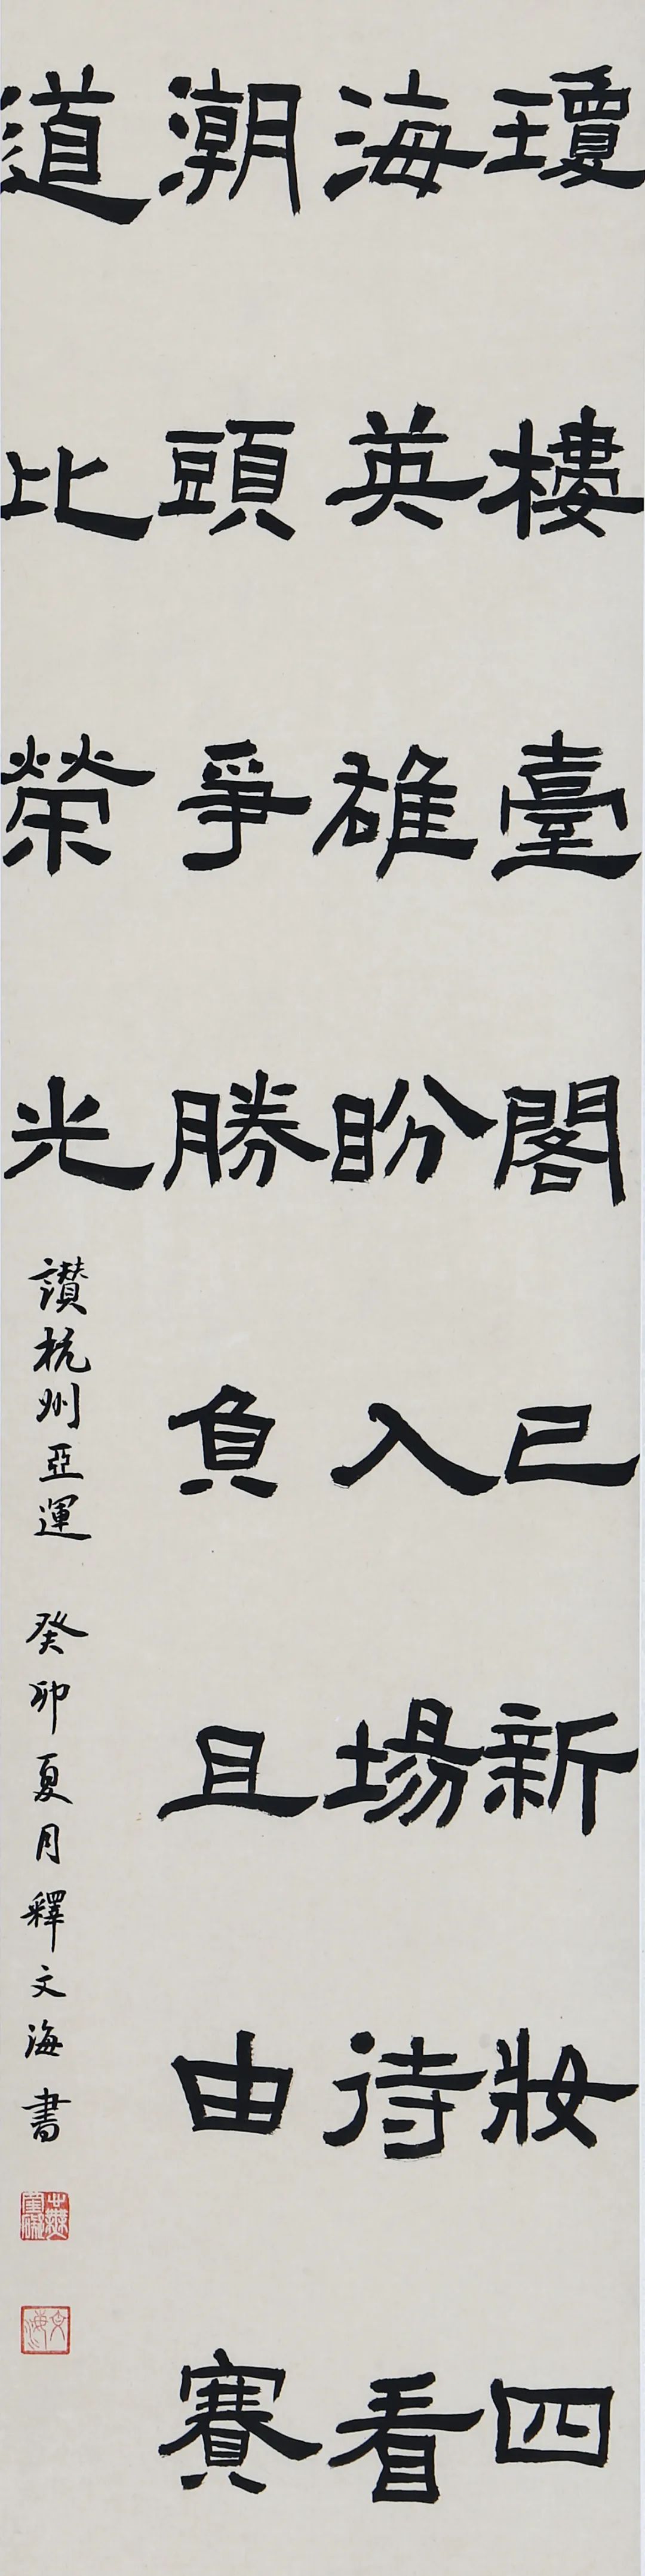 瓊樓臺閣已新妝四
海英雄盼入場待看
潮頭爭勝負且由賽
道比榮光
讚杭州亞運 癸卯夏月釋文海書
文海